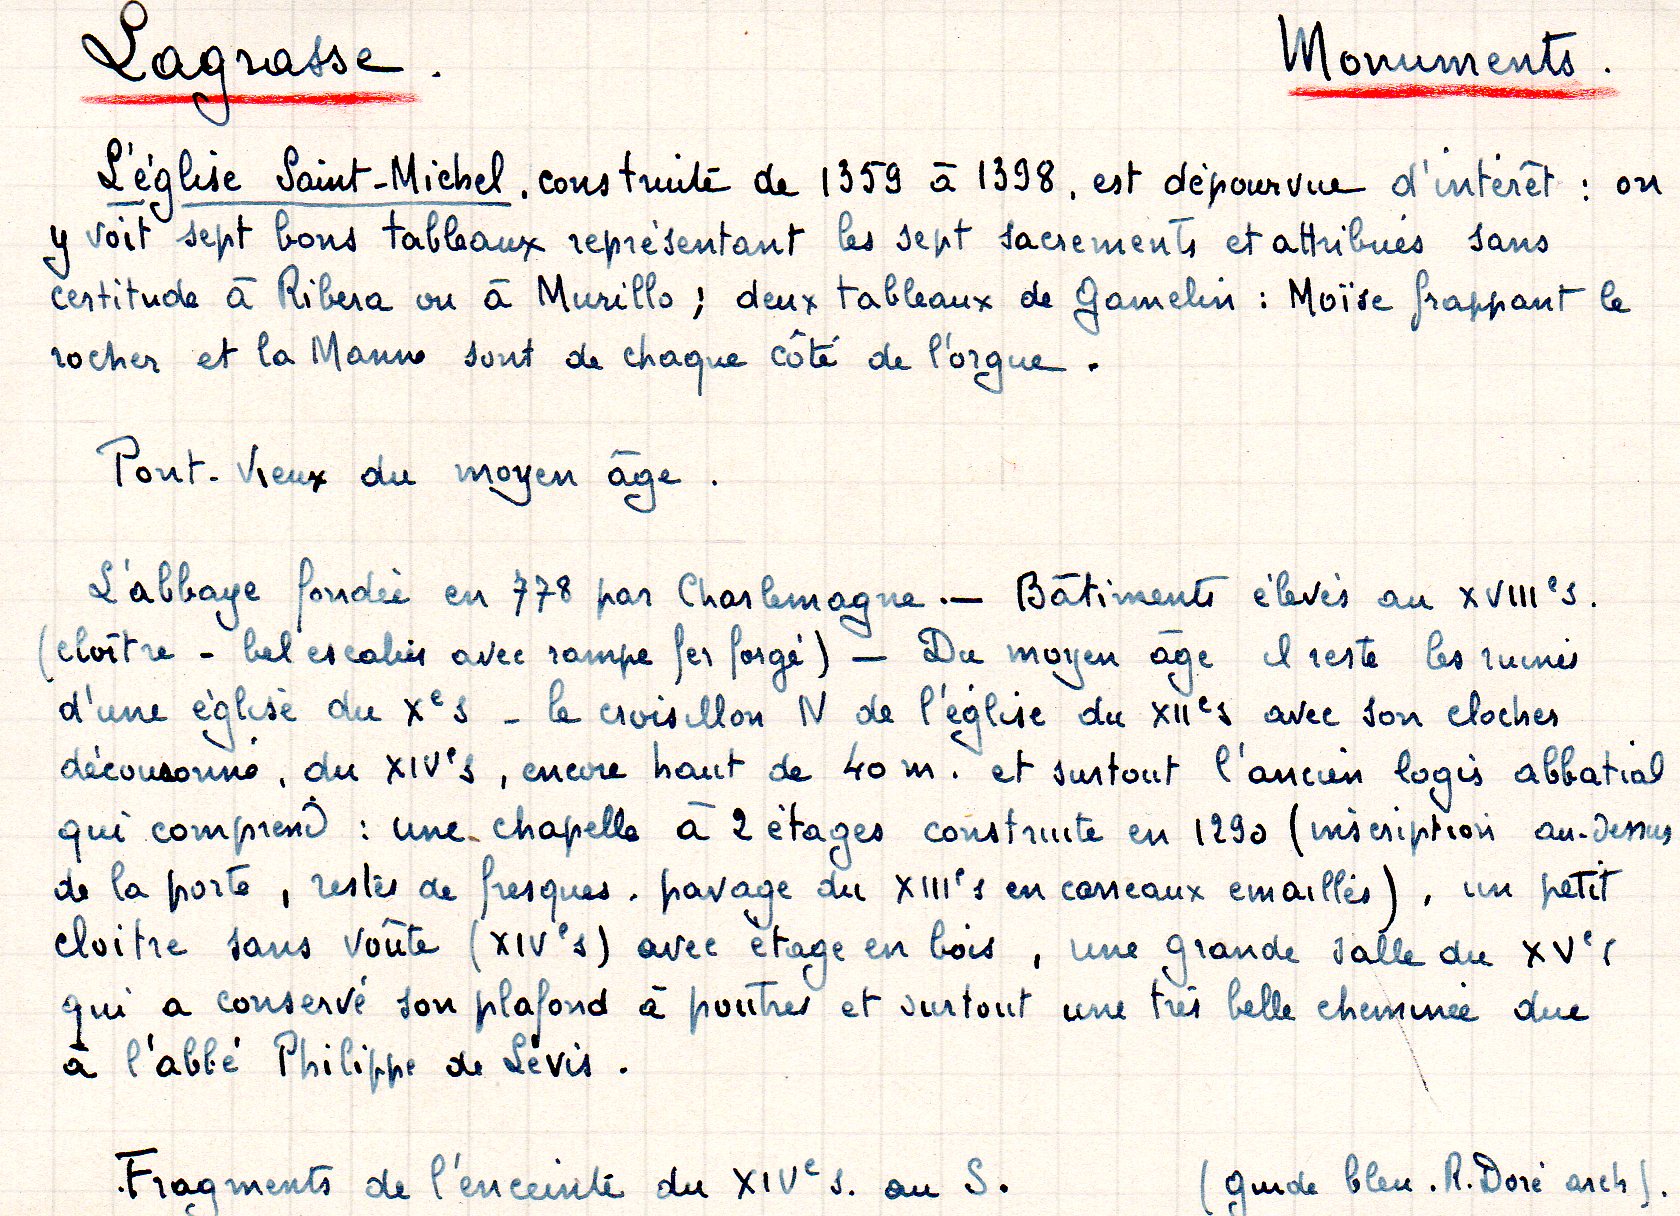 Lagrasse. Monuments.
L'église Saint-Michel, construite de 1359 à 1398, est dépourvue d'intérêt : on
y voit sept bons tableaux représentant les sept sacrements et attribués sans
certitude à Ribera ou à Murillo ; deux tableaux de Gamelin : Moïse frappant le
rocher et la Manne sont de chaque côté de l'orgue.
Pont-Vieux du moyen âge.
L'abbaye fondée en 778 par Charlemagne. — Bâtiments élevés au XVIIIe s.
(cloître - bel escalier avec rampe fer forgé) — Du moyen âge il reste les ruines
d'une église du Xe s - le croisillon N de l'église du XIIe s avec son clocher
découronné, du XIVe s, encore haut de 40 m. et surtout l'ancien logis abbatial
qui comprend : une chapelle à 2 étages construite en 1290 (inscription au-dessus
de la porte, restes de fresques. pavage du XIIIe s en carreaux emaillés), un petit
cloitre sans voûte (XIVe s) avec étage en bois, une grande salle du XVe s
qui a conservé son plafond à poutres et surtout une très belle cheminée due
à l'abbé Philippe de Lévis.
Fragments de l'enceinte du XIVe s. au S. (guide bleu. R. Doré arch).